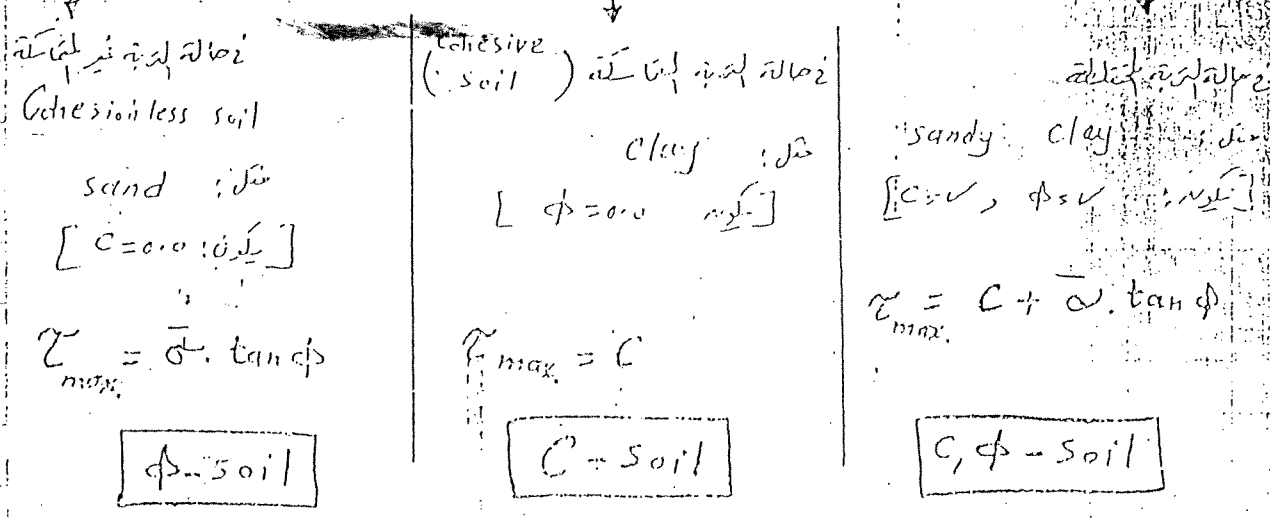 في حالة التربة غير المتماسكة
Cohesionless soil
مثل: sand
[يكون: C = 0.0]
τ max. = σ̄ . tan ϕ
ϕ - soil
في حالة التربة المتماسكة (Cohesive soil)
مثل: Clay
[يكون ϕ = 0.0]
τ max. = C
C - Soil
في حالة التربة
مثل: sandy clay
[يكون: C = ✓ , ϕ = ✓]
τ max. = C + σ̄ . tan ϕ
C, ϕ - Soil